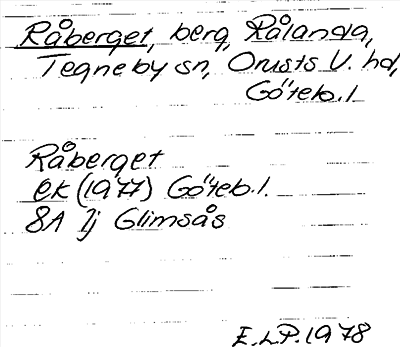 Råberget, berg, Rålanda,
Tegneby sn, Orusts V. hd,
Göteb. l.
Råberget
EK (1977) Göteb. l.
8A Ij Glimsås
E.L.P. 1978